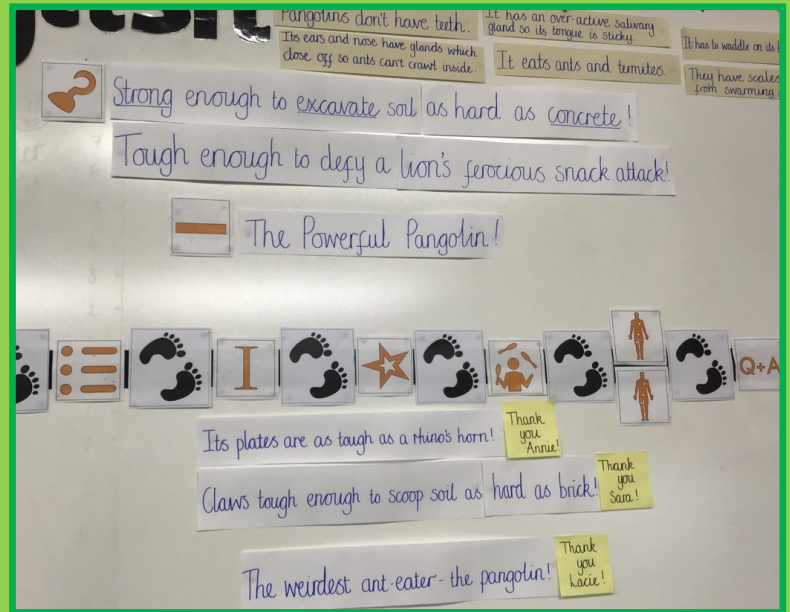 Pangolins don't have teeth.
It has an over-active salivary
gland so its tongue is sticky.
Its ears and nose have glands which
close off so ants can't crawl inside.
It eats ants and termites.
It has to waddle on its
They have scales
from swarming
Strong enough to excavate soil as hard as concrete!
Tough enough to defy a lion's ferocious snack attack!
The Powerful Pangolin!
I
Q+A
Its plates are as tough as a rhino's horn!
Thank
you
Annie!
Claws tough enough to scoop soil as hard as brick!
Thank
you
Sara!
The weirdest ant-eater - the pangolin!
Thank
you
Lacie!